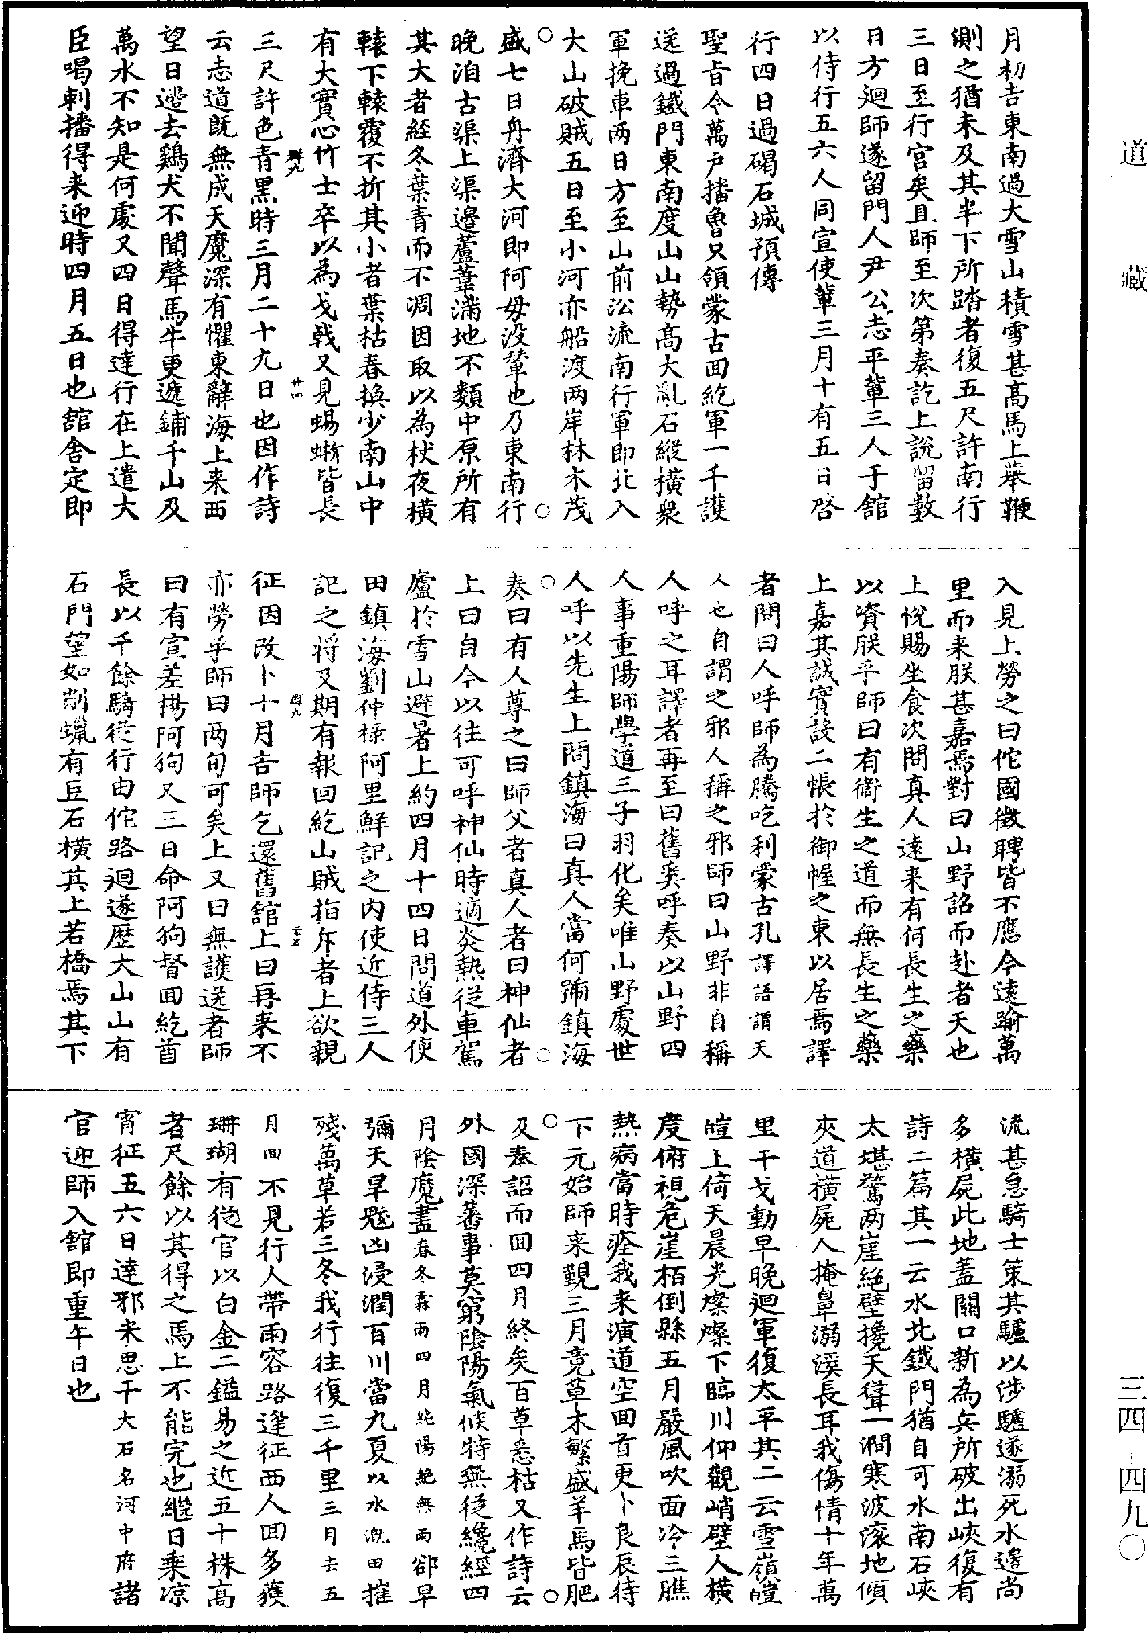 道藏
三四-四九〇
月初吉東南過大雪山積雪甚高馬上舉鞭
測之猶未及其半下所踏者復五尺許南行
三日至行宮矣且師至次第奏訖上說留數
日方迴師遂留門人尹公志平輩三人于館
以侍行五六人同宣使輩三月十有五日啓
行四日過碣石城預傳
聖旨令萬戶播魯只領蒙古回紇軍一千護
送過鐵門東南度山山勢高大亂石縱橫衆
軍挽車兩日方至山前沿流南行軍即北入
大山破賊五日至小河亦船渡兩岸林木茂
盛七日舟濟大河即阿毋没輦也乃東南行
晚泊古渠上渠邊蘆葦滿地不類中原所有
其大者經冬葉青而不凋因取以為杖夜橫
轅下轅覆不折其小者葉枯春換少南山中
有大實心竹士卒以為戈戟又見蜴蜥皆長
三尺許色青黑時三月二十九日也因作詩
云志道既無成天魔深有懼東辭海上来西
望日邊去鷄犬不聞聲馬牛更遞鋪千山及
萬水不知是何處又四日得達行在上遣大
臣喝剌播得来迎時四月五日也館舍定即
入見上勞之曰佗國徵聘皆不應今遠踰萬
里而来朕甚嘉焉對曰山野詔而赴者天也
上悅賜坐食次問真人遠来有何長生之藥
以資朕乎師曰有衛生之道而無長生之藥
上嘉其誠實設二帳於御幄之東以居焉譯
者問曰人呼師為騰吃利蒙古孔譯語謂天
人也自謂之邪人稱之邪師曰山野非自稱
人呼之耳譯者再至曰舊奚呼奏以山野四
人事重陽師學道三子羽化矣唯山野處世
人呼以先生上問鎮海曰真人當何號鎮海
奏曰有人尊之曰師父者真人者曰神仙者
上曰自今以往可呼神仙時適炎熱從車駕
廬於雪山避暑上約四月十四日問道外使
田鎮海劉仲祿阿里鮮記之内使近侍三人
記之將及期有報回紇山賊指斥者上欲親
征因改卜十月吉師乞還舊館上曰再来不
亦勞乎師曰兩旬可矣上又曰無護送者師
曰有宣差楊阿狗又三日命阿狗督回紇酋
長以千餘騎從行由佗路迴遂歷大山山有
石門望如削蠟有巨石橫其上若橋焉其下
流甚急騎士策其驢以涉驢遂溺死水邊尚
多橫屍此地蓋關口新為兵所破出峽復有
詩二篇其一云水北鐵門猶自可水南石峽
太堪驚兩崖絕壁攙天聳一澗寒波滾地傾
夾道橫屍人掩鼻溺溪長耳我傷情十年萬
里干戈動早晚迴軍復太平其二云雪嶺皚
皚上倚天晨光燦燦下臨川仰觀峭壁人橫
度俯視危崖栢倒懸五月嚴風吹面冷三膲
熱病當時痊我来演道空回首更卜良辰待
下元始師来覲三月竟草木繁盛羊馬皆肥
及奉詔而回四月終矣百草悉枯又作詩云
外國深蕃事莫窮陰陽氣候特無從纔經四
月陰魔盡春冬霖雨四月純陽絕無雨郤早
彌天旱魃凶浸潤百川當九夏以水溉田摧
殘萬草若三冬我行往復三千里三月去五
月回不見行人帶雨容路逢征西人回多獲
珊瑚有從官以白金二鎰易之近五十株高
者尺餘以其得之馬上不能完也繼日乘凉
宵征五六日達邪米思干大石名河中府諸
官迎師入館即重午日也